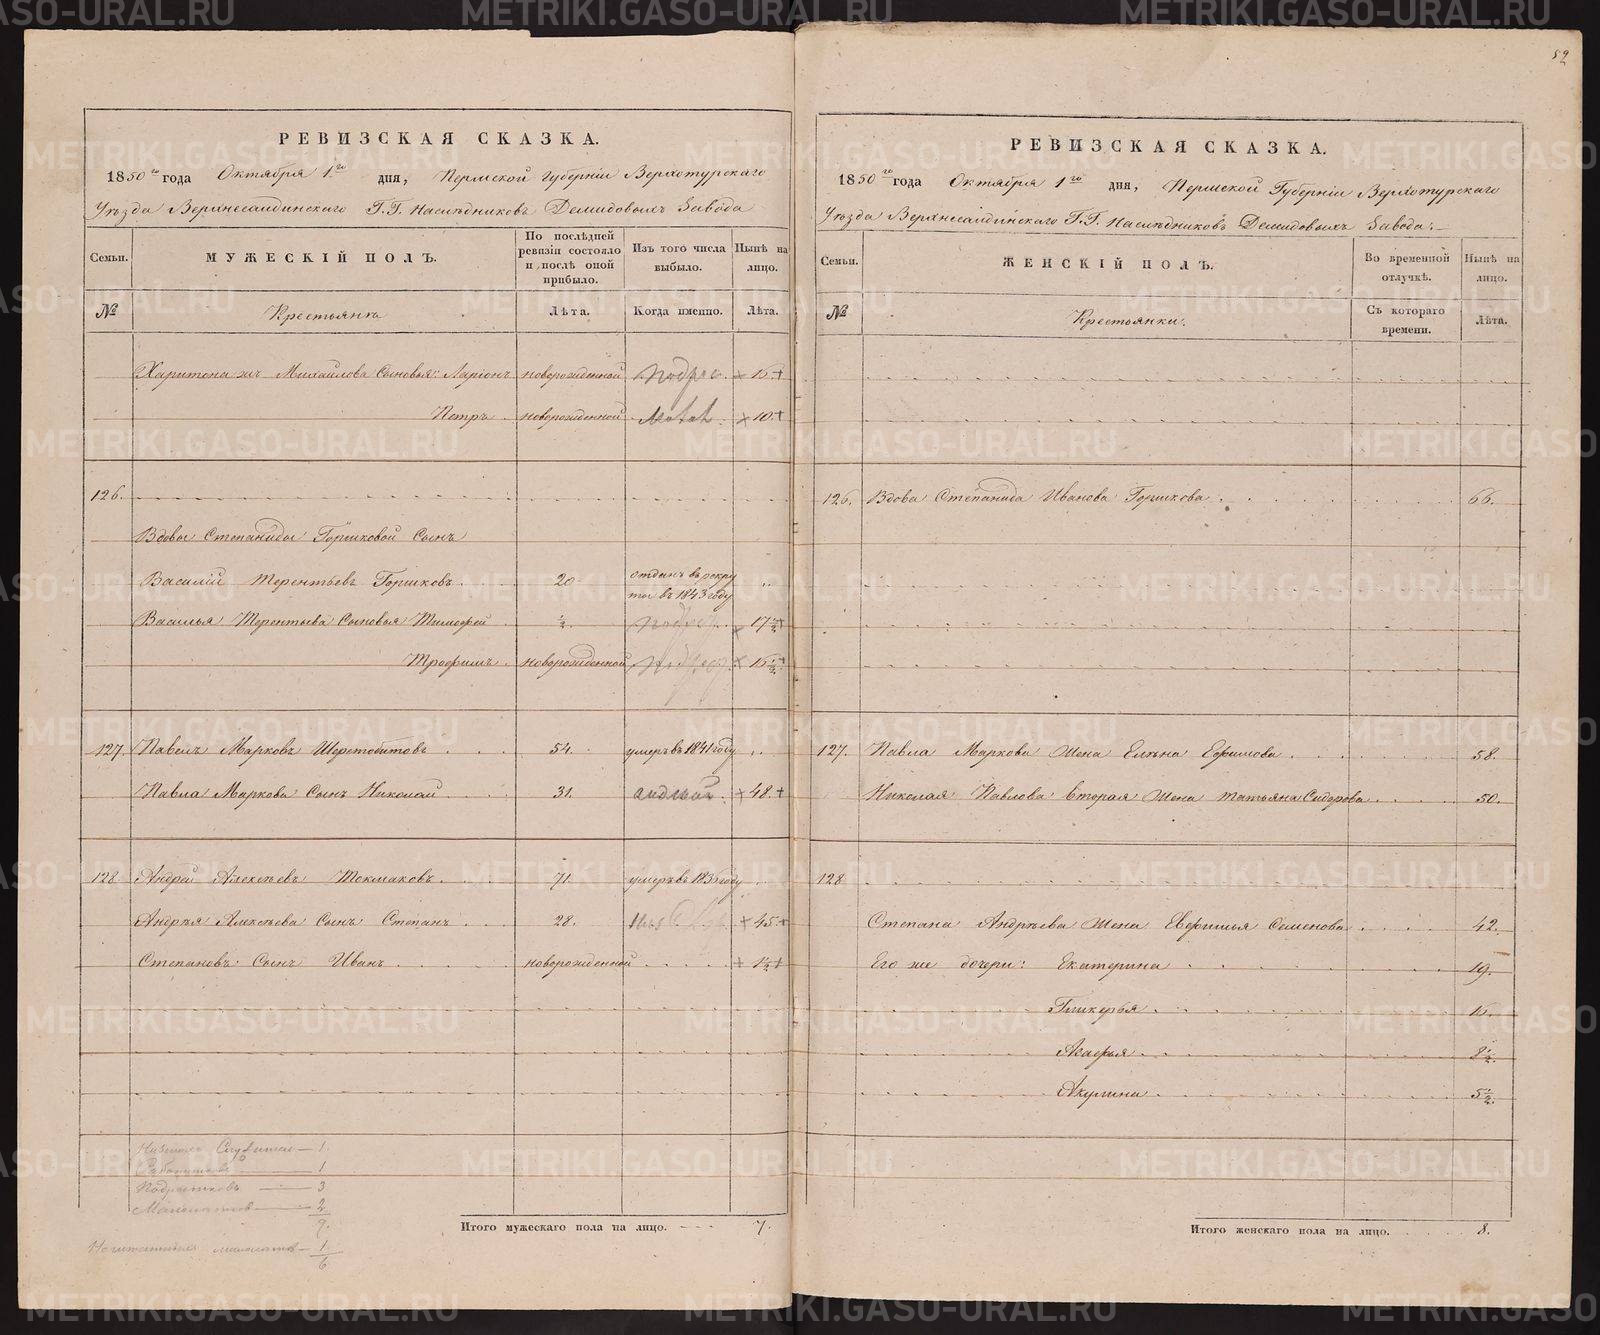 52
РЕВИЗСКАЯ СКАЗКА.
1850го года Октября 1го дня, Пермской Губерніи Верхотурскаго
Уѣзда Верхнесалдинскаго Г.Г. Наслѣдниковъ Демидовыхъ Завода
Семьи. МУЖЕСКІЙ ПОЛЪ. По послѣдней ревизіи состояло и послѣ оной прибыло. Изъ того числа выбыло. Нынѣ на лицо.
№ Крестьянъ Лѣта. Когда именно. Лѣта.
Харитона жъ Михайлова Сыновья: Ларіонъ новорожденной Подрос. 15
Петръ новорожденной Малол. 10
126.
Вдовы Степаниды Горшковой Сынъ
Василій Терентьевъ Горшковъ 20 отданъ въ рекру
ты въ 1843 году
Василья Терентьева Сыновья Тимофей ½ Подрос. 17½
Трофимъ новорожденной Подрос. 15½
127. Павелъ Марковъ Шерстобитовъ 54. умеръ въ 1841 году
Павла Маркова Сынъ Николай 31. 48.
128. Андрей Алексѣевъ Токмаковъ 71. умеръ въ 1836 году
Андрея Алексѣева Сынъ Степанъ 28. 45
Степановъ Сынъ Иванъ новорожденной 1½
1
1
Подростковъ — 3
Малолѣтковъ — 2
7.
малолѣтковъ — 1
6
Итого мужескаго пола на лицо. 7.
РЕВИЗСКАЯ СКАЗКА.
1850го года Октября 1го дня, Пермской Губерніи Верхотурскаго
Уѣзда Верхнесалдинскаго Г.Г. Наслѣдниковъ Демидовыхъ Завода.
Семьи. ЖЕНСКІЙ ПОЛЪ. Во временной отлучкѣ. Нынѣ на лицо.
№ Крестьянки. Съ котораго времени. Лѣта.
126. Вдова Степанида Иванова Горшкова 66.
127. Павла Маркова Жена Елѣна Ефимова 58.
Николая Павлова Вторая Жена Татьяна Сидорова 50.
128
Степана Андрѣева Жена Евфимья Семенова 42.
Его же дочери: Екатерина 19.
Гликерья 15.
Агафья 8½.
Акулина 5½.
Итого женскаго пола на лицо. 8.
METRIKI.GASO-URAL.RU